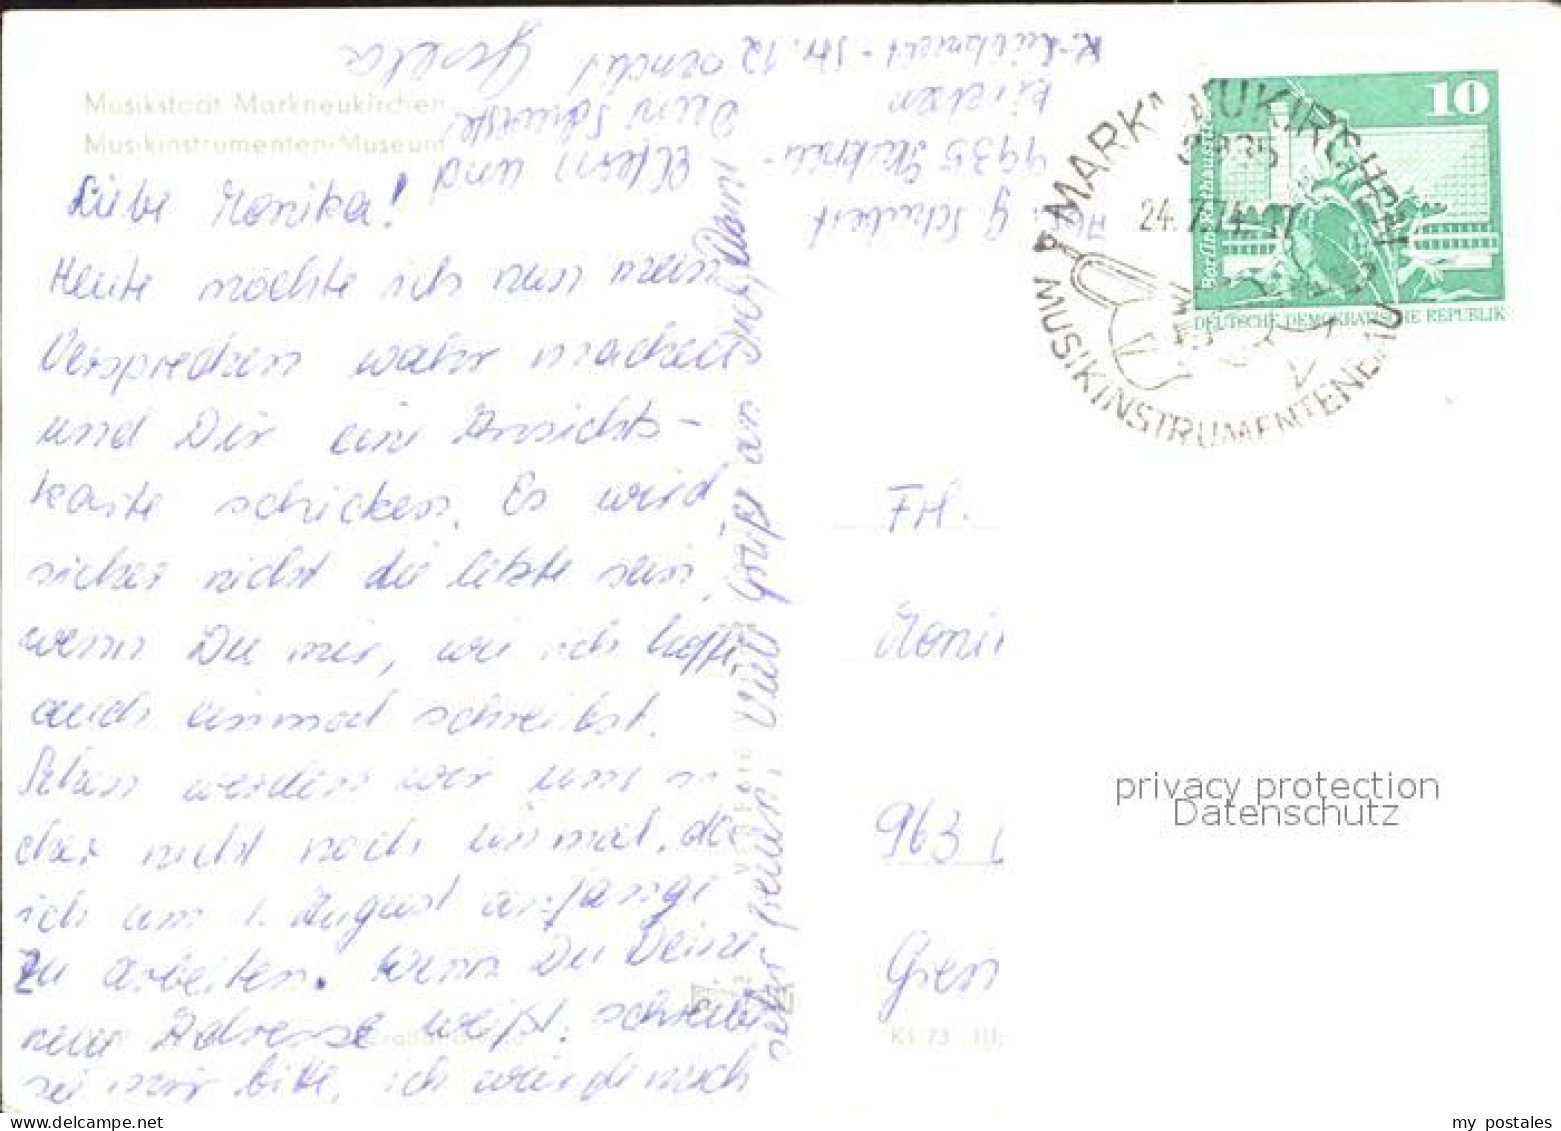 Musikstadt Markneukirchen
Musikinstrumenten-Museum
Liebe Monika!
Heute möchte ich nun mein
Versprechen wahr machen
und Dir eine Ansichts-
karte schicken. Es wird
sicher nicht die letzte sein,
wenn Du mir, wie ich hoffe,
auch einmal schreibst.
Sehen werden wir uns si
cher nicht noch einmal, da
ich am 1. August anfange
zu arbeiten. Wenn Du Deine
neue Adresse weißt, schreibe
sie mir bitte, ich würde mich
sehr freuen. Viele Grüße an
Eltern und
Deine Schwester
sendet Gisela
G. Schubert
9935 Markneu-
kirchen
K-Liebknecht-Str. 12
MARKNEUKIRCHEN
9935
24.7.74-17
MUSIKINSTRUMENTENBAU
10
Berlin, Rathausstraße
DEUTSCHE DEMOKRATISCHE REPUBLIK
Frl.
Moni
963
privacy protection
Datenschutz
KI 73 III
my postales